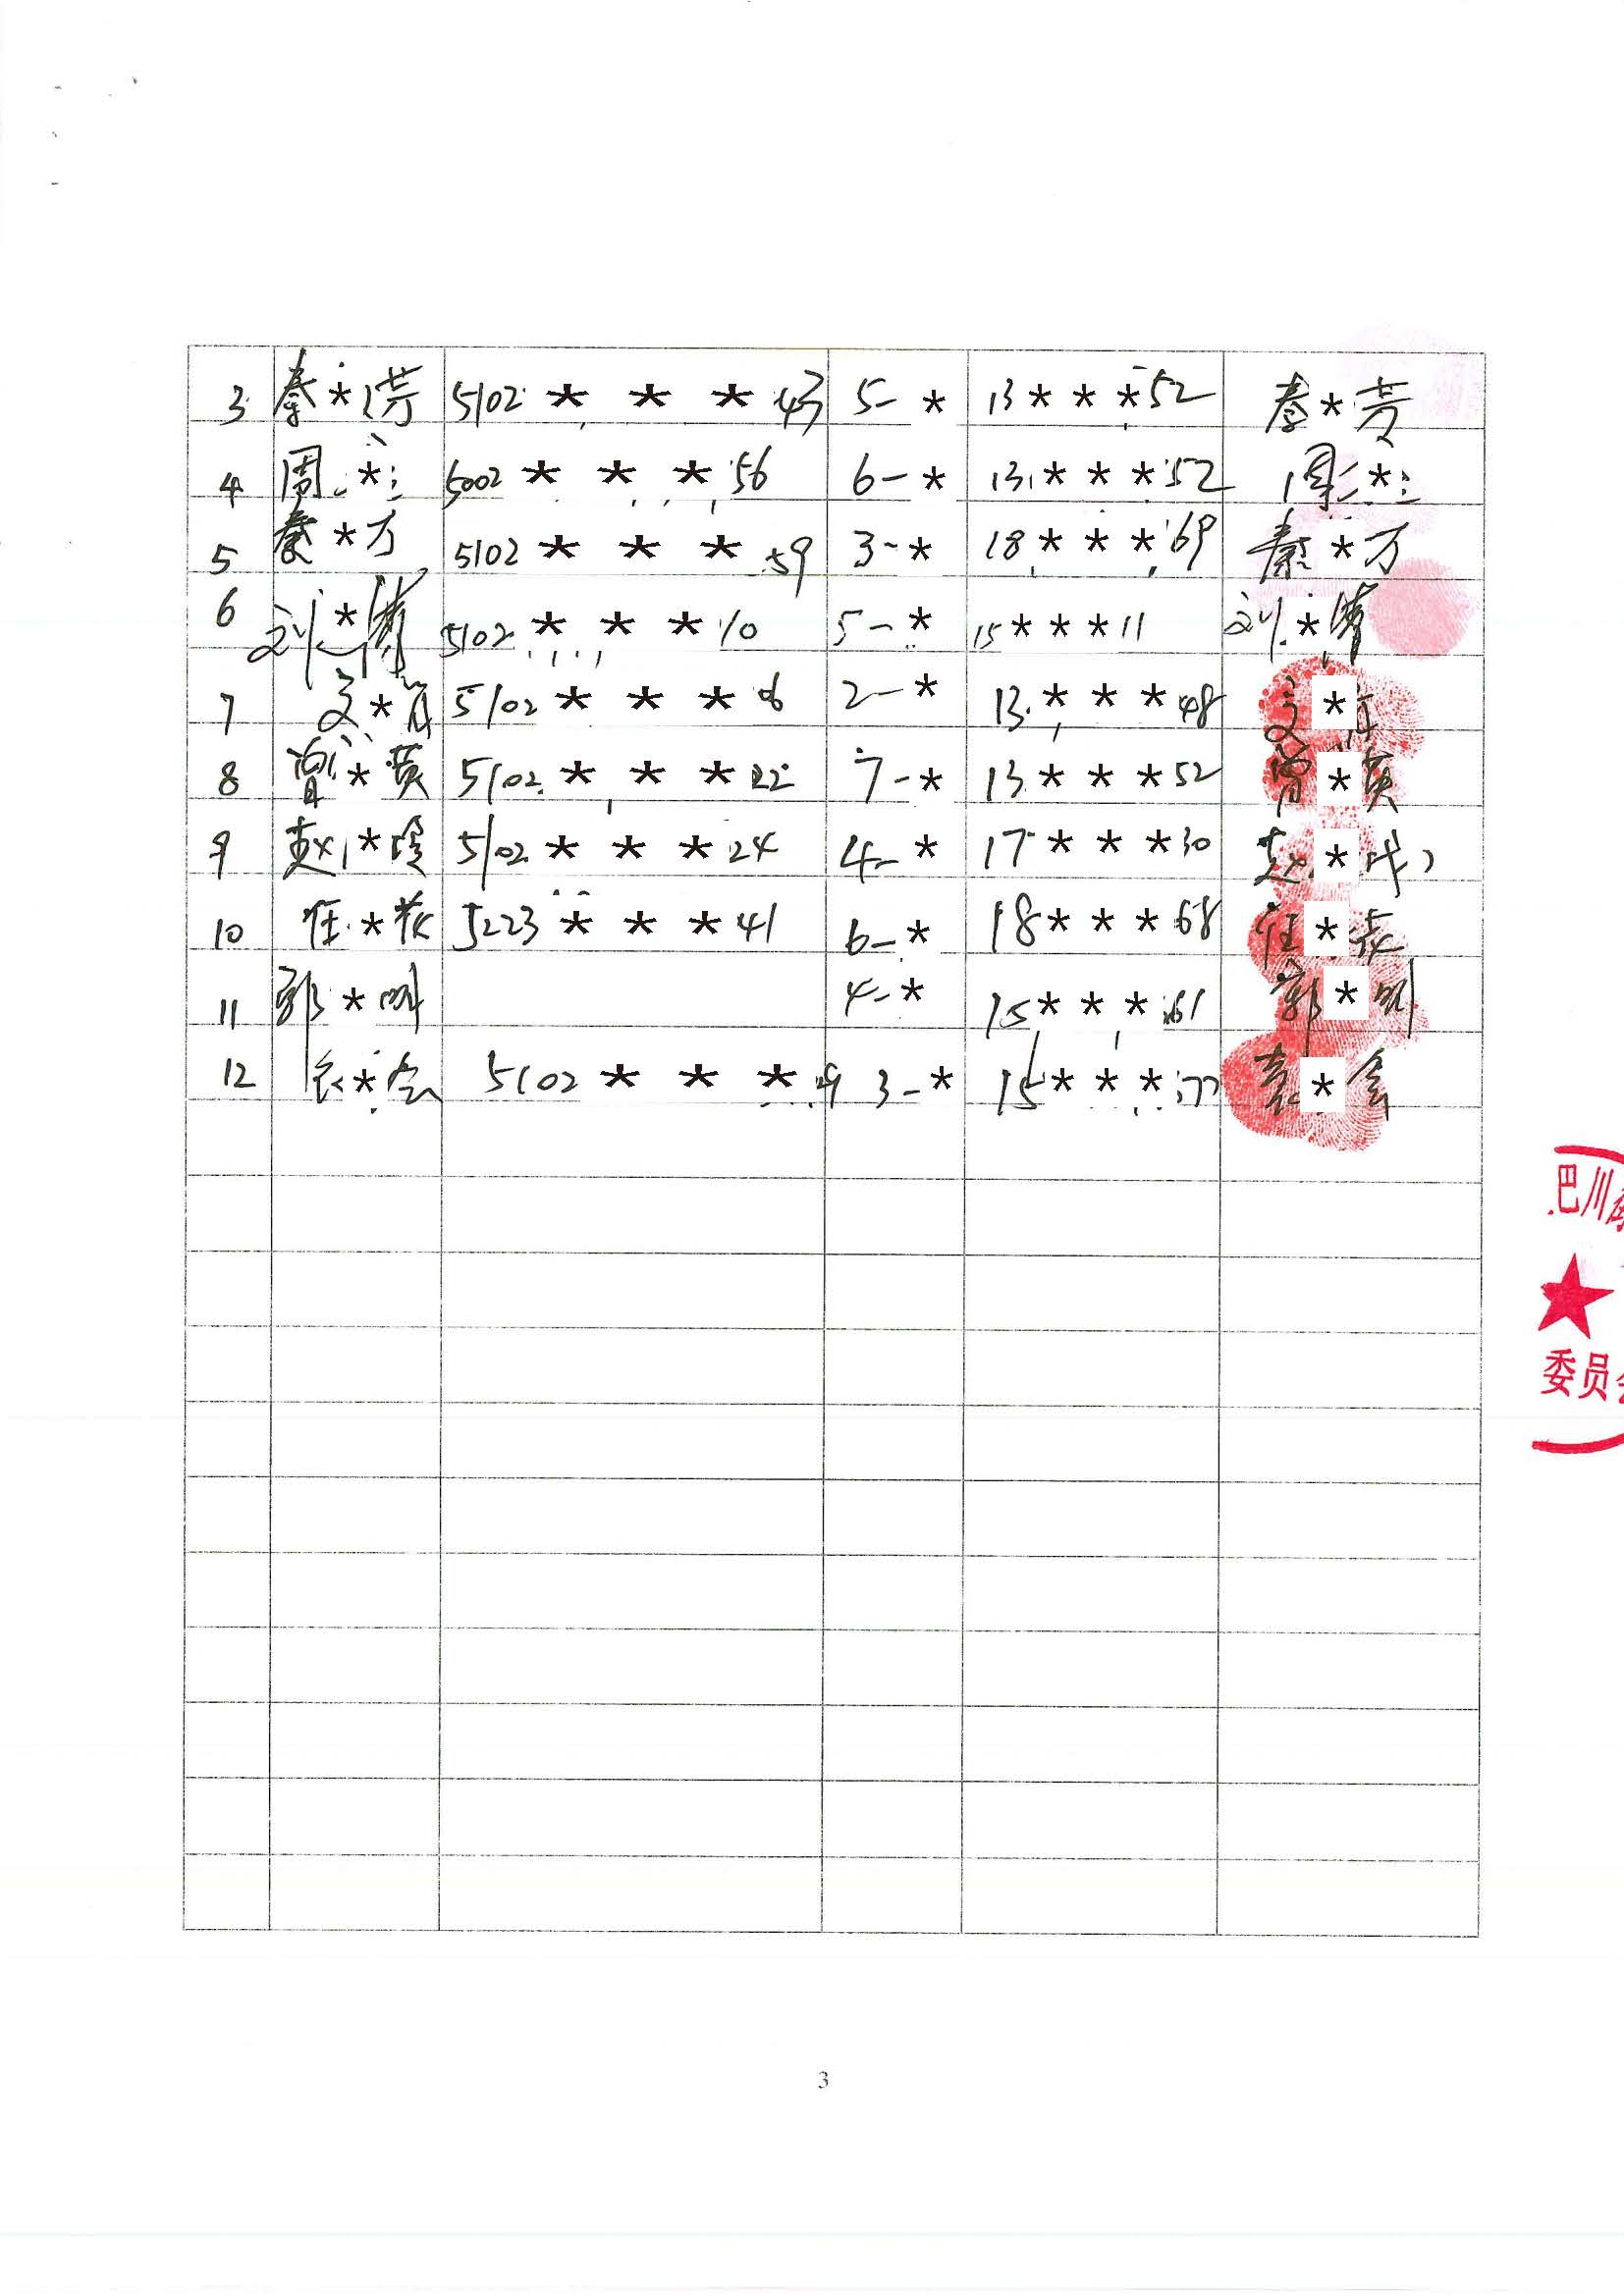 3 秦*芳 5102 * * * 43 5-* 13***52 秦*芳
4 周* 5002 * * * 56 6-* 13***52 周*
5 秦*万 5102 * * * 59 3-* 18***69 秦*万
6 刘* 5102 * * * 10 5-* 15***11 刘*
7 * 5102 * * * 6 2-* 13***48 *
8 曾*英 5102 * * * 22 7-* 13***52 曾*英
9 赵* 5102 * * * 24 4-* 17***30 赵*
10 任* 5223 * * * 41 6-* 18***68 任*
11 郭*明 4-* 15***61 郭*明
12 袁*会 5102 * * * 9 3-* 15***77 袁*会
巴川
委员
3